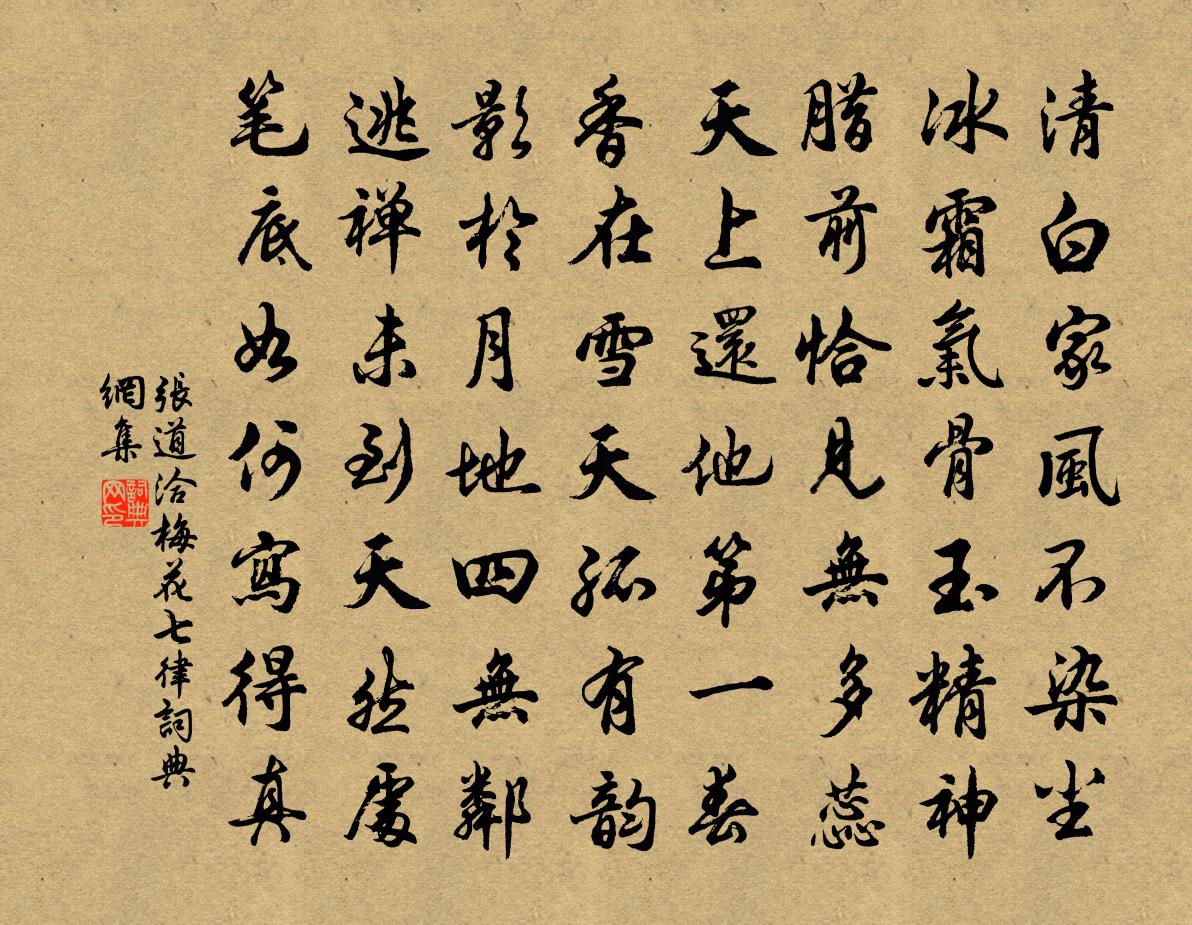 清白家風不染尘
冰霜氣骨玉精神
腊前恰見無多蕊
天上還他第一春
香在雪天孤有韵
影於月地四無鄰
逃禅未到天然處
笔底如何寫得真
張道洽梅花七律詞典
網集
詞典
网印